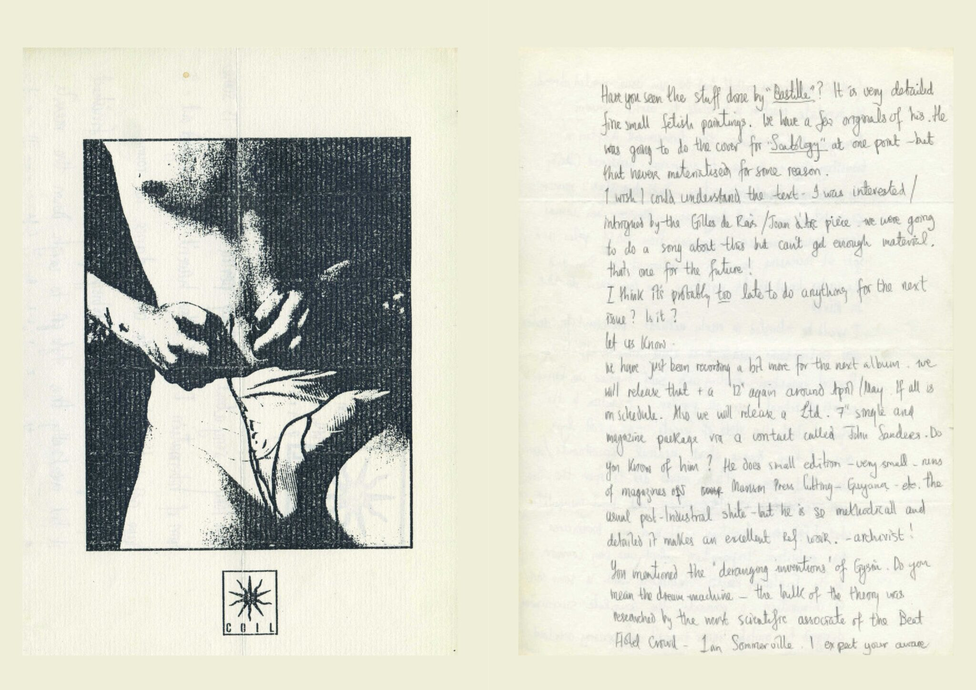 COIL
Have you seen the stuff done by "Bastille"? It is very detailed
fine small fetish paintings. We have a few originals of his. He
was going to do the cover for "Scatology" at one point - but
that never materialised for some reason.
I wish I could understand the text - I was interested /
intrigued by the Gilles de Rais / Joan d'Arc piece. we were going
to do a song about this but can't get enough material.
thats one for the future!
I think its probably too late to do anything for the next
issue? Is it?
let us know.
We have just been recording a bit more for the next album. we
will release that + a '12" again around April / May. If all is
on schedule. Also we will release a Ltd. 7" single and
magazine package via a contact called John Sanders. Do
you know of him? He does small edition - very small - runs
of magazines of Manson Press Cutting - Guyana - etc. the
usual post-Industrial shite - but he is so methodicall and
detailed it makes an excellent ref work. - archivist!
You mentioned the 'deranging inventions' of Gysin. Do you
mean the dream-machine - the bulk of the theory was
researched by the more scientific associate of the Beat
Hotel Crowd - Ian Sommerville. I expect your aware